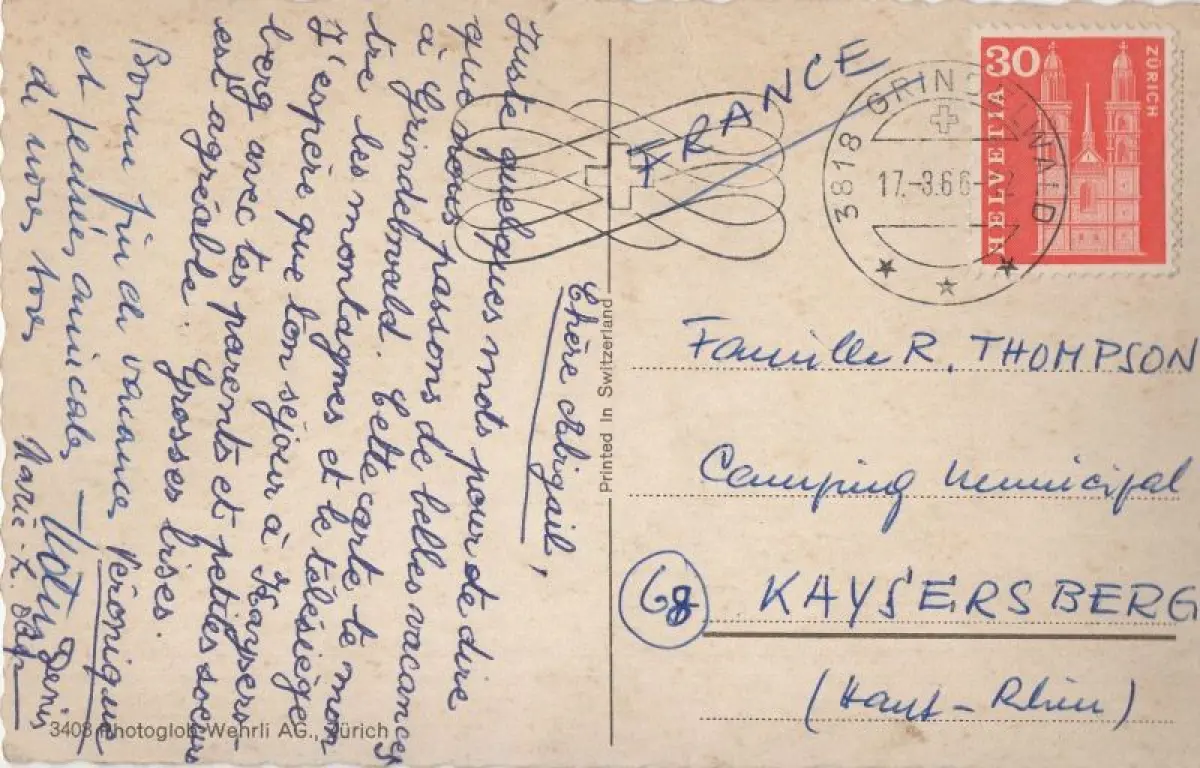 Chère Abigail,
Juste quelques mots pour te dire
que nous passons de belles vacances
à Grindelwald. Cette carte te mon
tre les montagnes et le télésiège
J'espère que ton séjour à Kaysers-
berg avec tes parents et petites soeurs
est agréable. Grosses bises.
Véronique
Bonne fin de vacances
et pensées amicales
de nous tous
Denis
Marie-L.
FRANCE
3818 GRINDELWALD
17.-3.66-
30
HELVETIA
ZÜRICH
Printed in Switzerland
Famille R. THOMPSON
Camping Municipal
68
KAYSERSBERG
(Haut-Rhin)
3408 Photoglob-Wehrli AG., Zürich